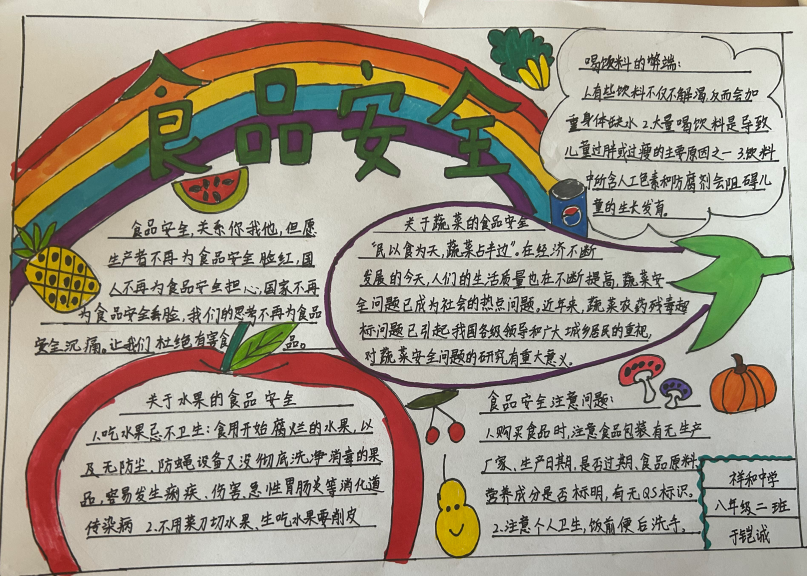 食品安全
喝饮料的弊端:
1.有些饮料不仅不解渴,反而会加
重身体缺水 2.大量喝饮料是导致
儿童过胖或过瘦的主要原因之一 3.饮料
中所含人工色素和防腐剂会阻碍儿
童的生长发育。
食品安全,关系你我他,但愿
生产者不再为食品安全脸红,国
人不再为食品安全担心,国家不再
为食品安全丢脸,我们的思考不再为食品
安全沉痛。让我们杜绝有害食品。
关于蔬菜的食品安全
“民以食为天,蔬菜占半边”。在经济不断
发展的今天,人们的生活质量也在不断提高,蔬菜安
全问题已成为社会的热点问题,近年来,蔬菜农药残毒超
标问题已引起我国各级领导和广大城乡居民的重视,
对蔬菜安全问题的研究有重大意义。
关于水果的食品安全
1.吃水果忌不卫生:食用开始腐烂的水果,以
及无防尘、防蝇设备又没彻底洗净消毒的果
品,容易发生痢疾、伤害、急性胃肠炎等消化道
传染病 2.不用菜刀切水果、生吃水果要削皮
食品安全注意问题:
1.购买食品时,注意食品包装有无生产
厂家、生产日期,是否过期,食品原料、
营养成分是否标明,有无QS标识。
2.注意个人卫生,饭前便后洗手。
祥和中学
八年级二班
于铠诚